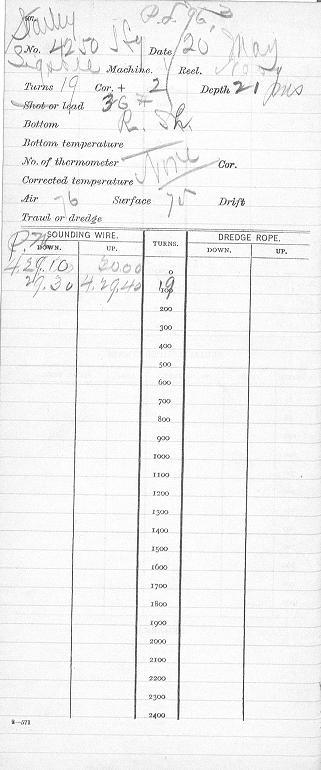 507.
P.L. 96
No. 4250 Hy Date 20 May
Machine. Reel.
Turns 19 Cor. + 2 Depth 21 fms
Shot or lead 36 #
Bottom R. Sh.
Bottom temperature
No. of thermometer None Cor.
Corrected temperature
Air 76 Surface 75 Drift
Trawl or dredge
SOUNDING WIRE. TURNS. DREDGE ROPE.
DOWN. UP. DOWN. UP.
4.29.10 3000 0
29.30 4.29.40 19 100
200
300
400
500
600
700
800
900
1000
1100
1200
1300
1400
1500
1600
1700
1800
1900
2000
2100
2200
2300
2400
2—571